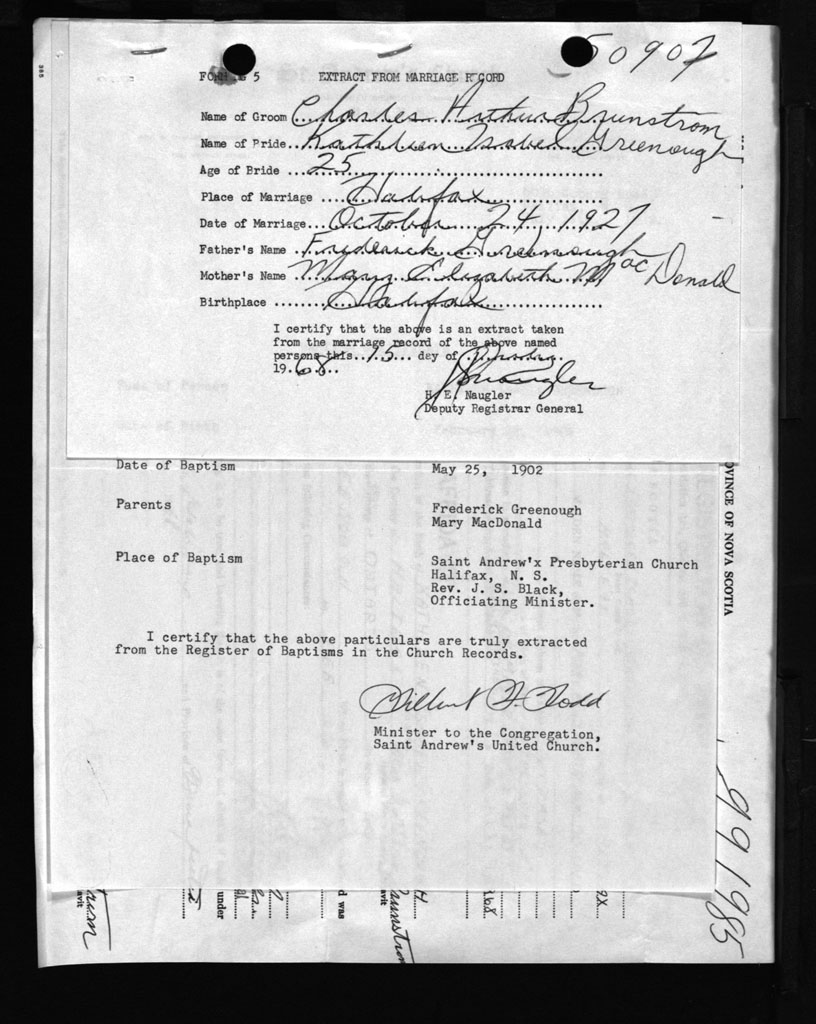 50907
FORM 5 EXTRACT FROM MARRIAGE RECORD
Name of Groom Charles Arthur Brunstrom
Name of Bride Kathleen Isabel Greenough
Age of Bride 25
Place of Marriage Halifax
Date of Marriage October 24, 1927
Father's Name Frederick Greenough
Mother's Name Mary Elizabeth MacDonald
Birthplace Halifax
I certify that the above is an extract taken
from the marriage record of the above named
persons this 15 day of
1968
H. E. Naugler
Deputy Registrar General
Date of Baptism May 25, 1902
Parents Frederick Greenough
Mary MacDonald
Place of Baptism Saint Andrew'x Presbyterian Church
Halifax, N. S.
Rev. J. S. Black,
Officiating Minister.
I certify that the above particulars are truly extracted
from the Register of Baptisms in the Church Records.
Minister to the Congregation,
Saint Andrew's United Church.
OVINCE OF NOVA SCOTIA
991985
under
d was